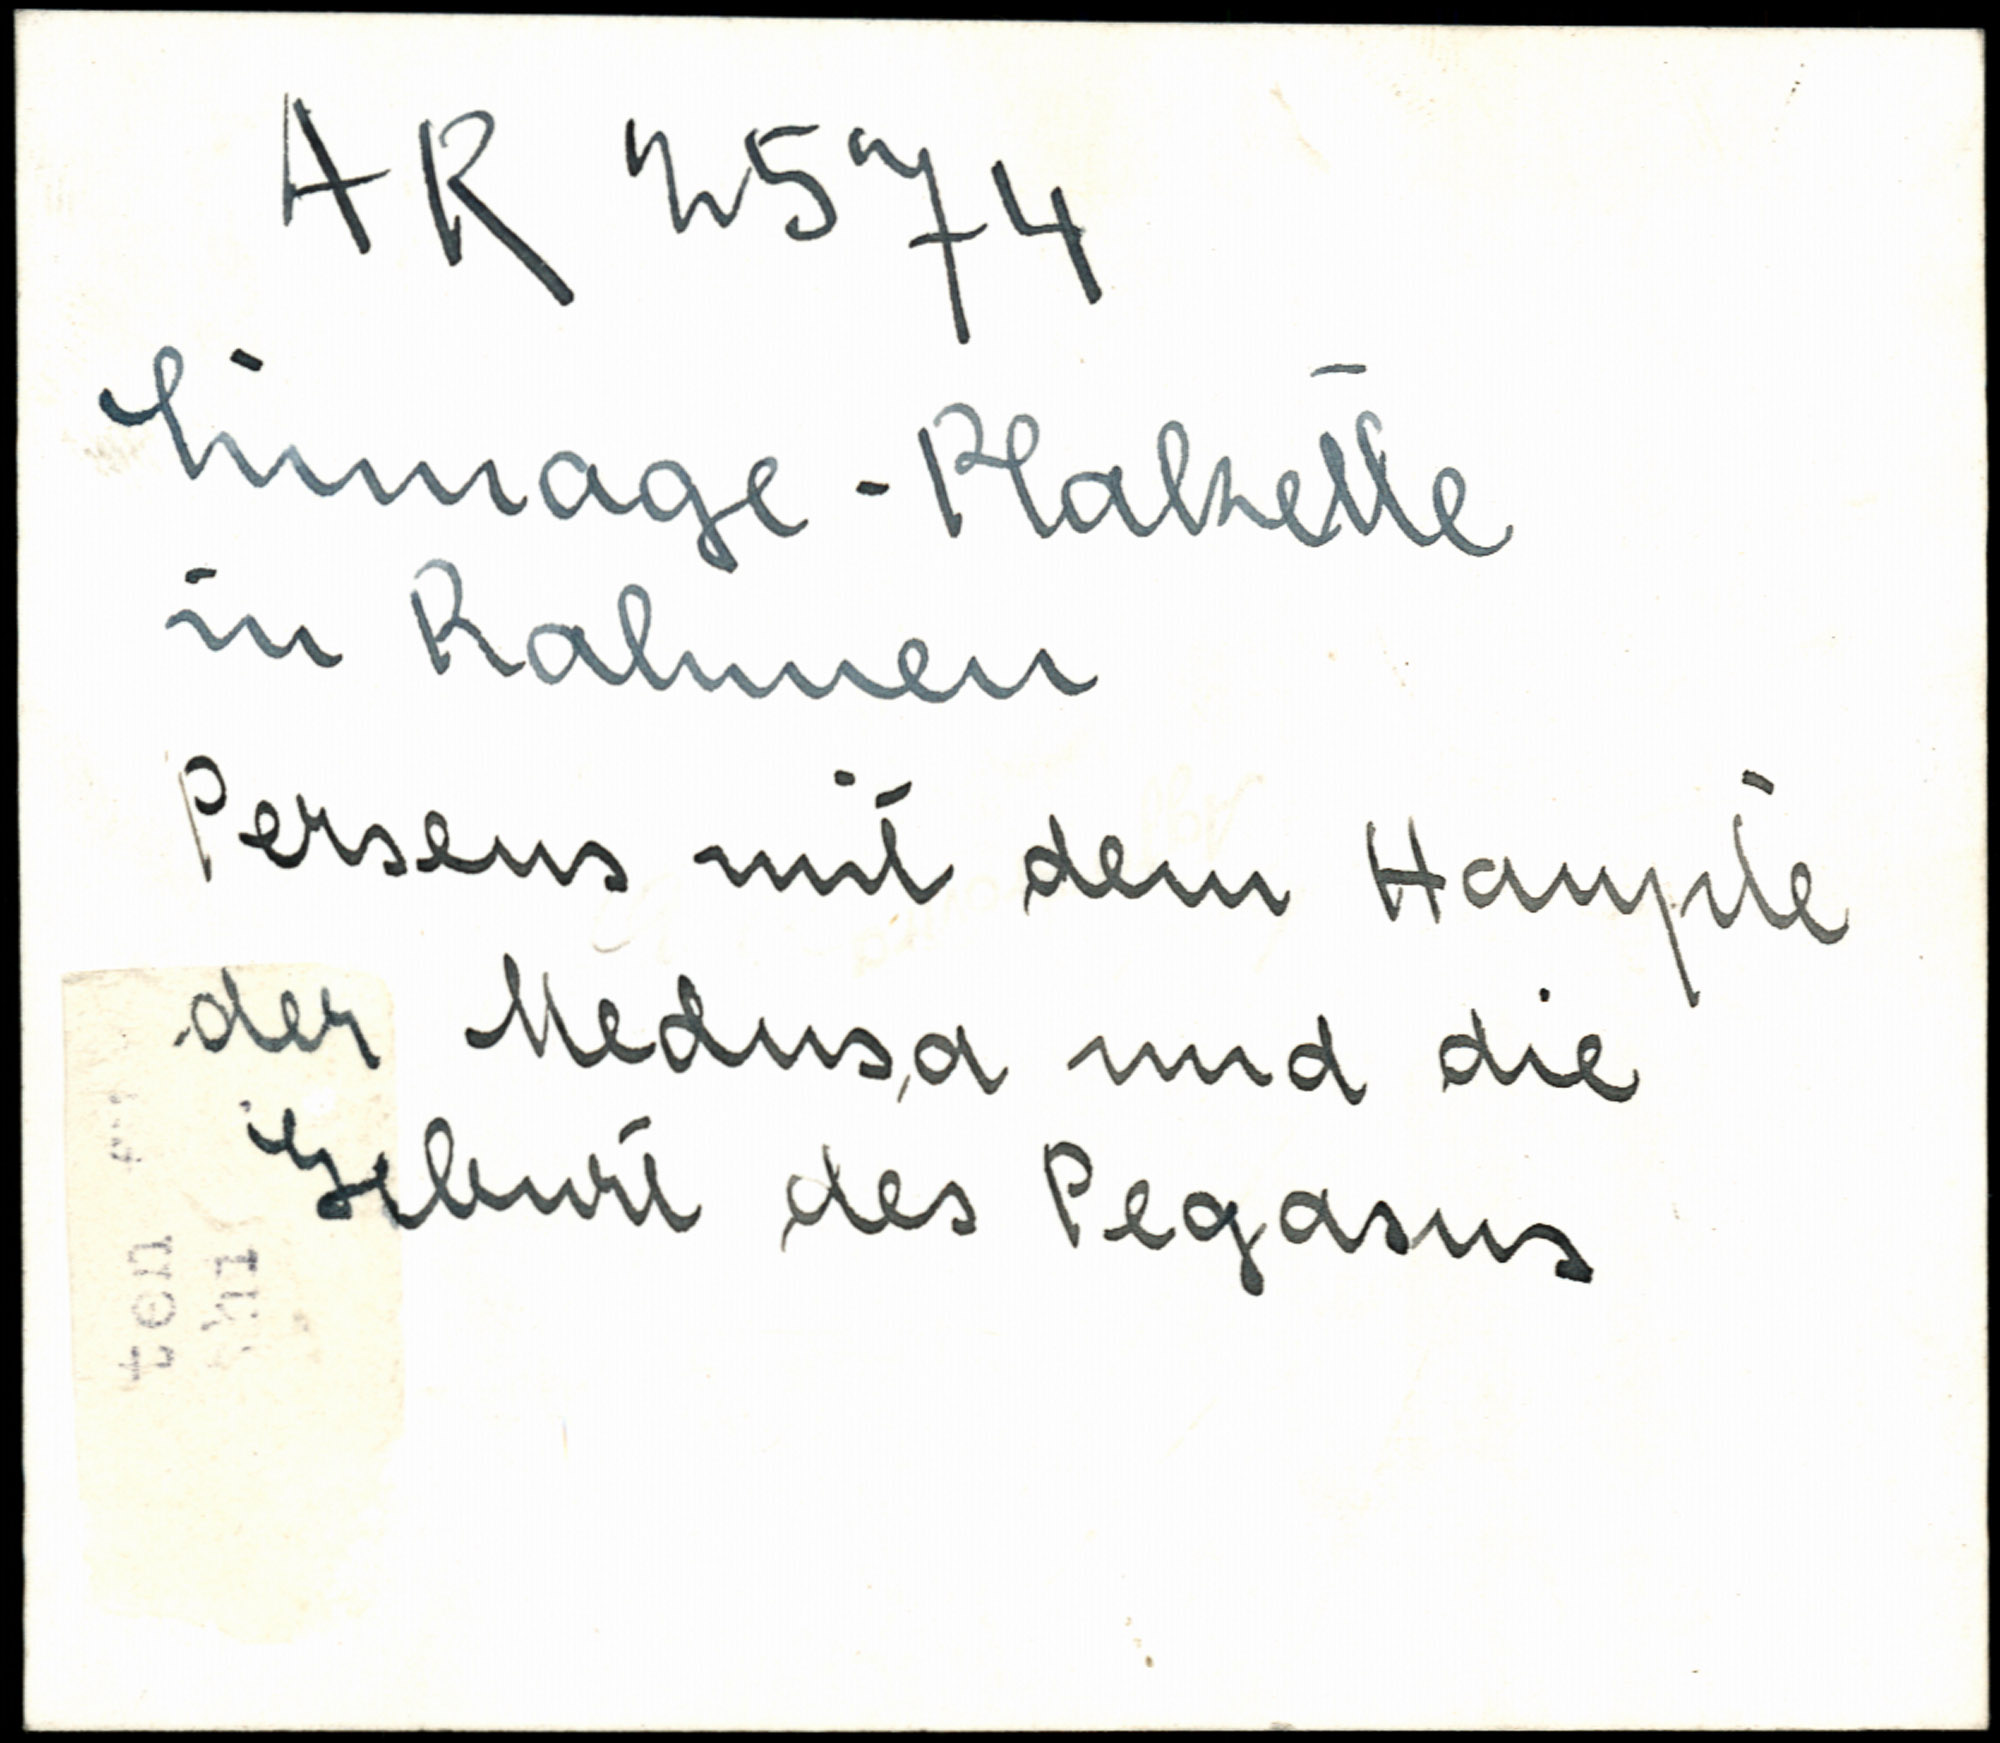 AR 2574
Limoge-Plakette
in Rahmen
Perseus mit dem Haupte
der Medusa und die
Geburt des Pegasus
ten